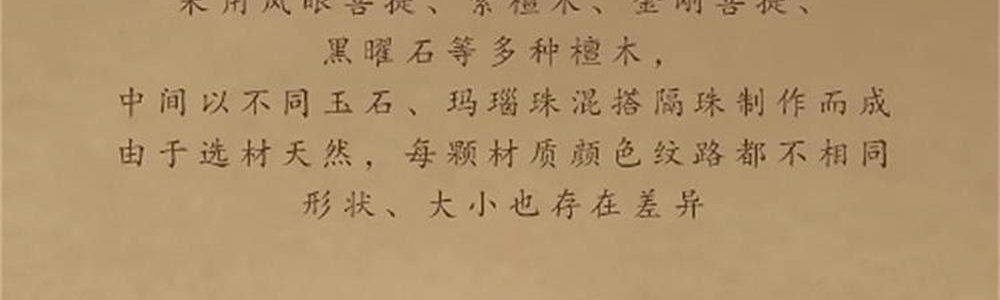 采用凤眼菩提、紫檀木、金刚菩提、
黑曜石等多种檀木，
中间以不同玉石、玛瑙珠混搭隔珠制作而成
由于选材天然，每颗材质颜色纹路都不相同
形状、大小也存在差异